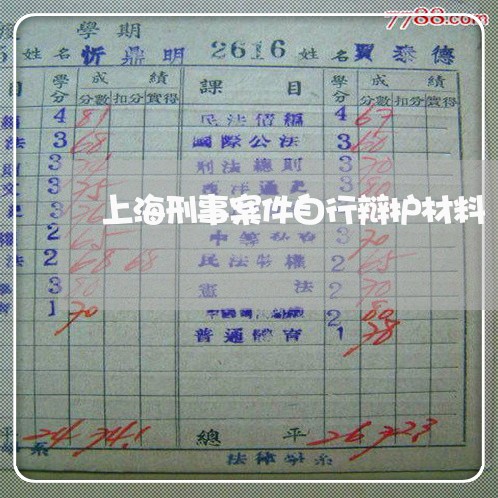 7788.com
學期
姓名 忻鼎明 2616 姓名 賈泰德
目 學分 成績 課目 學分 成績
分數 扣分 實得 分數 扣分 實得
4 81 民法債編 4 67
法 3 68 國際公法 3 60
3 刑法總則 3 70
3 75 3
上海刑事案件自行辩护材料
3
2 65 3 70
法 2 68 68 民法物權 2 65
3 80 憲法 2 70
1 70 2 80
普通體育 1 78
平 24 74.1 總平 26 72.3
系 法律學系